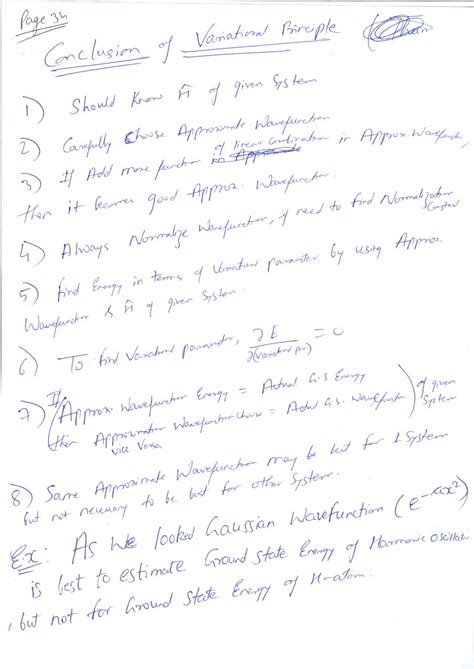 Page 34
Conclusion of Variational Principle
1) Should know Ĥ of given system
2) Carefully Choose Approximate Wavefunction
3) If Add more function of linear Combination in Approx. Wavefunction,
then it becomes good Approx. Wavefunction.
4) Always Normalize Wavefunction, if need to find Normalization Constant
5) find Energy in terms of Variational parameter by using Approx.
Wavefunction & Ĥ of given System.
6) To find Variational parameter, ∂E/∂(variational par) = 0
7) If (Approx. Wavefunction Energy = Actual G.S Energy
then Approximation Wavefunction choose = Actual G.S. Wavefunction) of given System
vice versa
8) Same Approximate Wavefunction may be best for 1 System
but not necessary to be best for other System.
Ex: As we looked Gaussian Wavefunction (e^-αx²)
is best to estimate Ground state Energy of Harmonic Oscillator
, but not for Ground State Energy of H-atom.